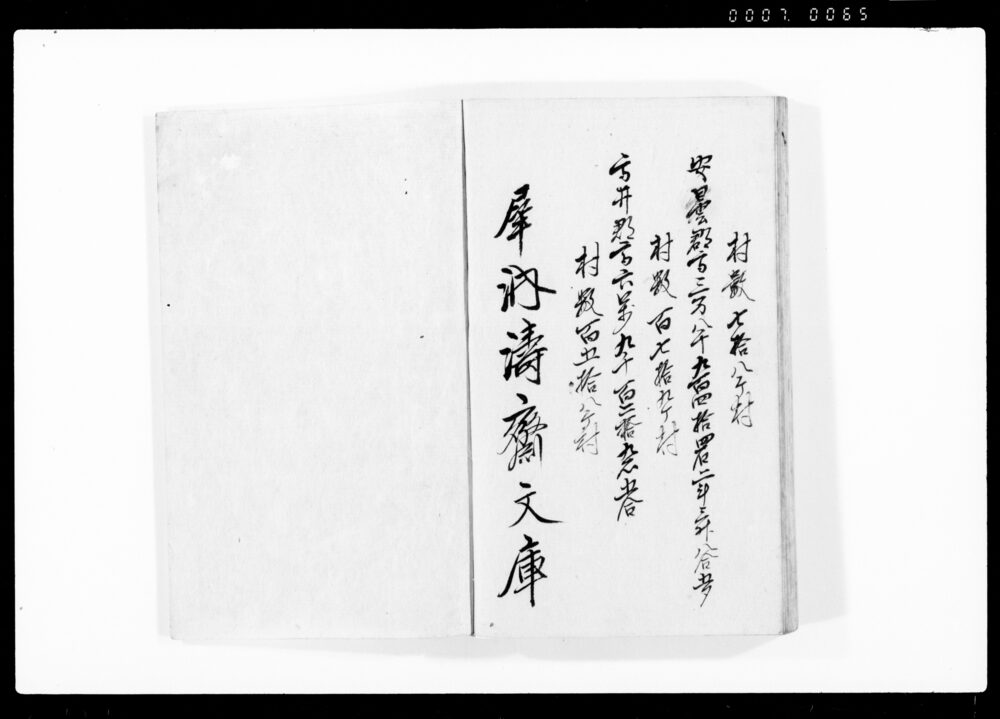 0007. 0065
村数七拾八ケ村
安曇郡高三万八千九百四拾四石二斗三升八合
村数百七拾九ケ村
高井郡高六万九千百二拾九石
村数百五拾八ケ村
犀 濤齋文庫